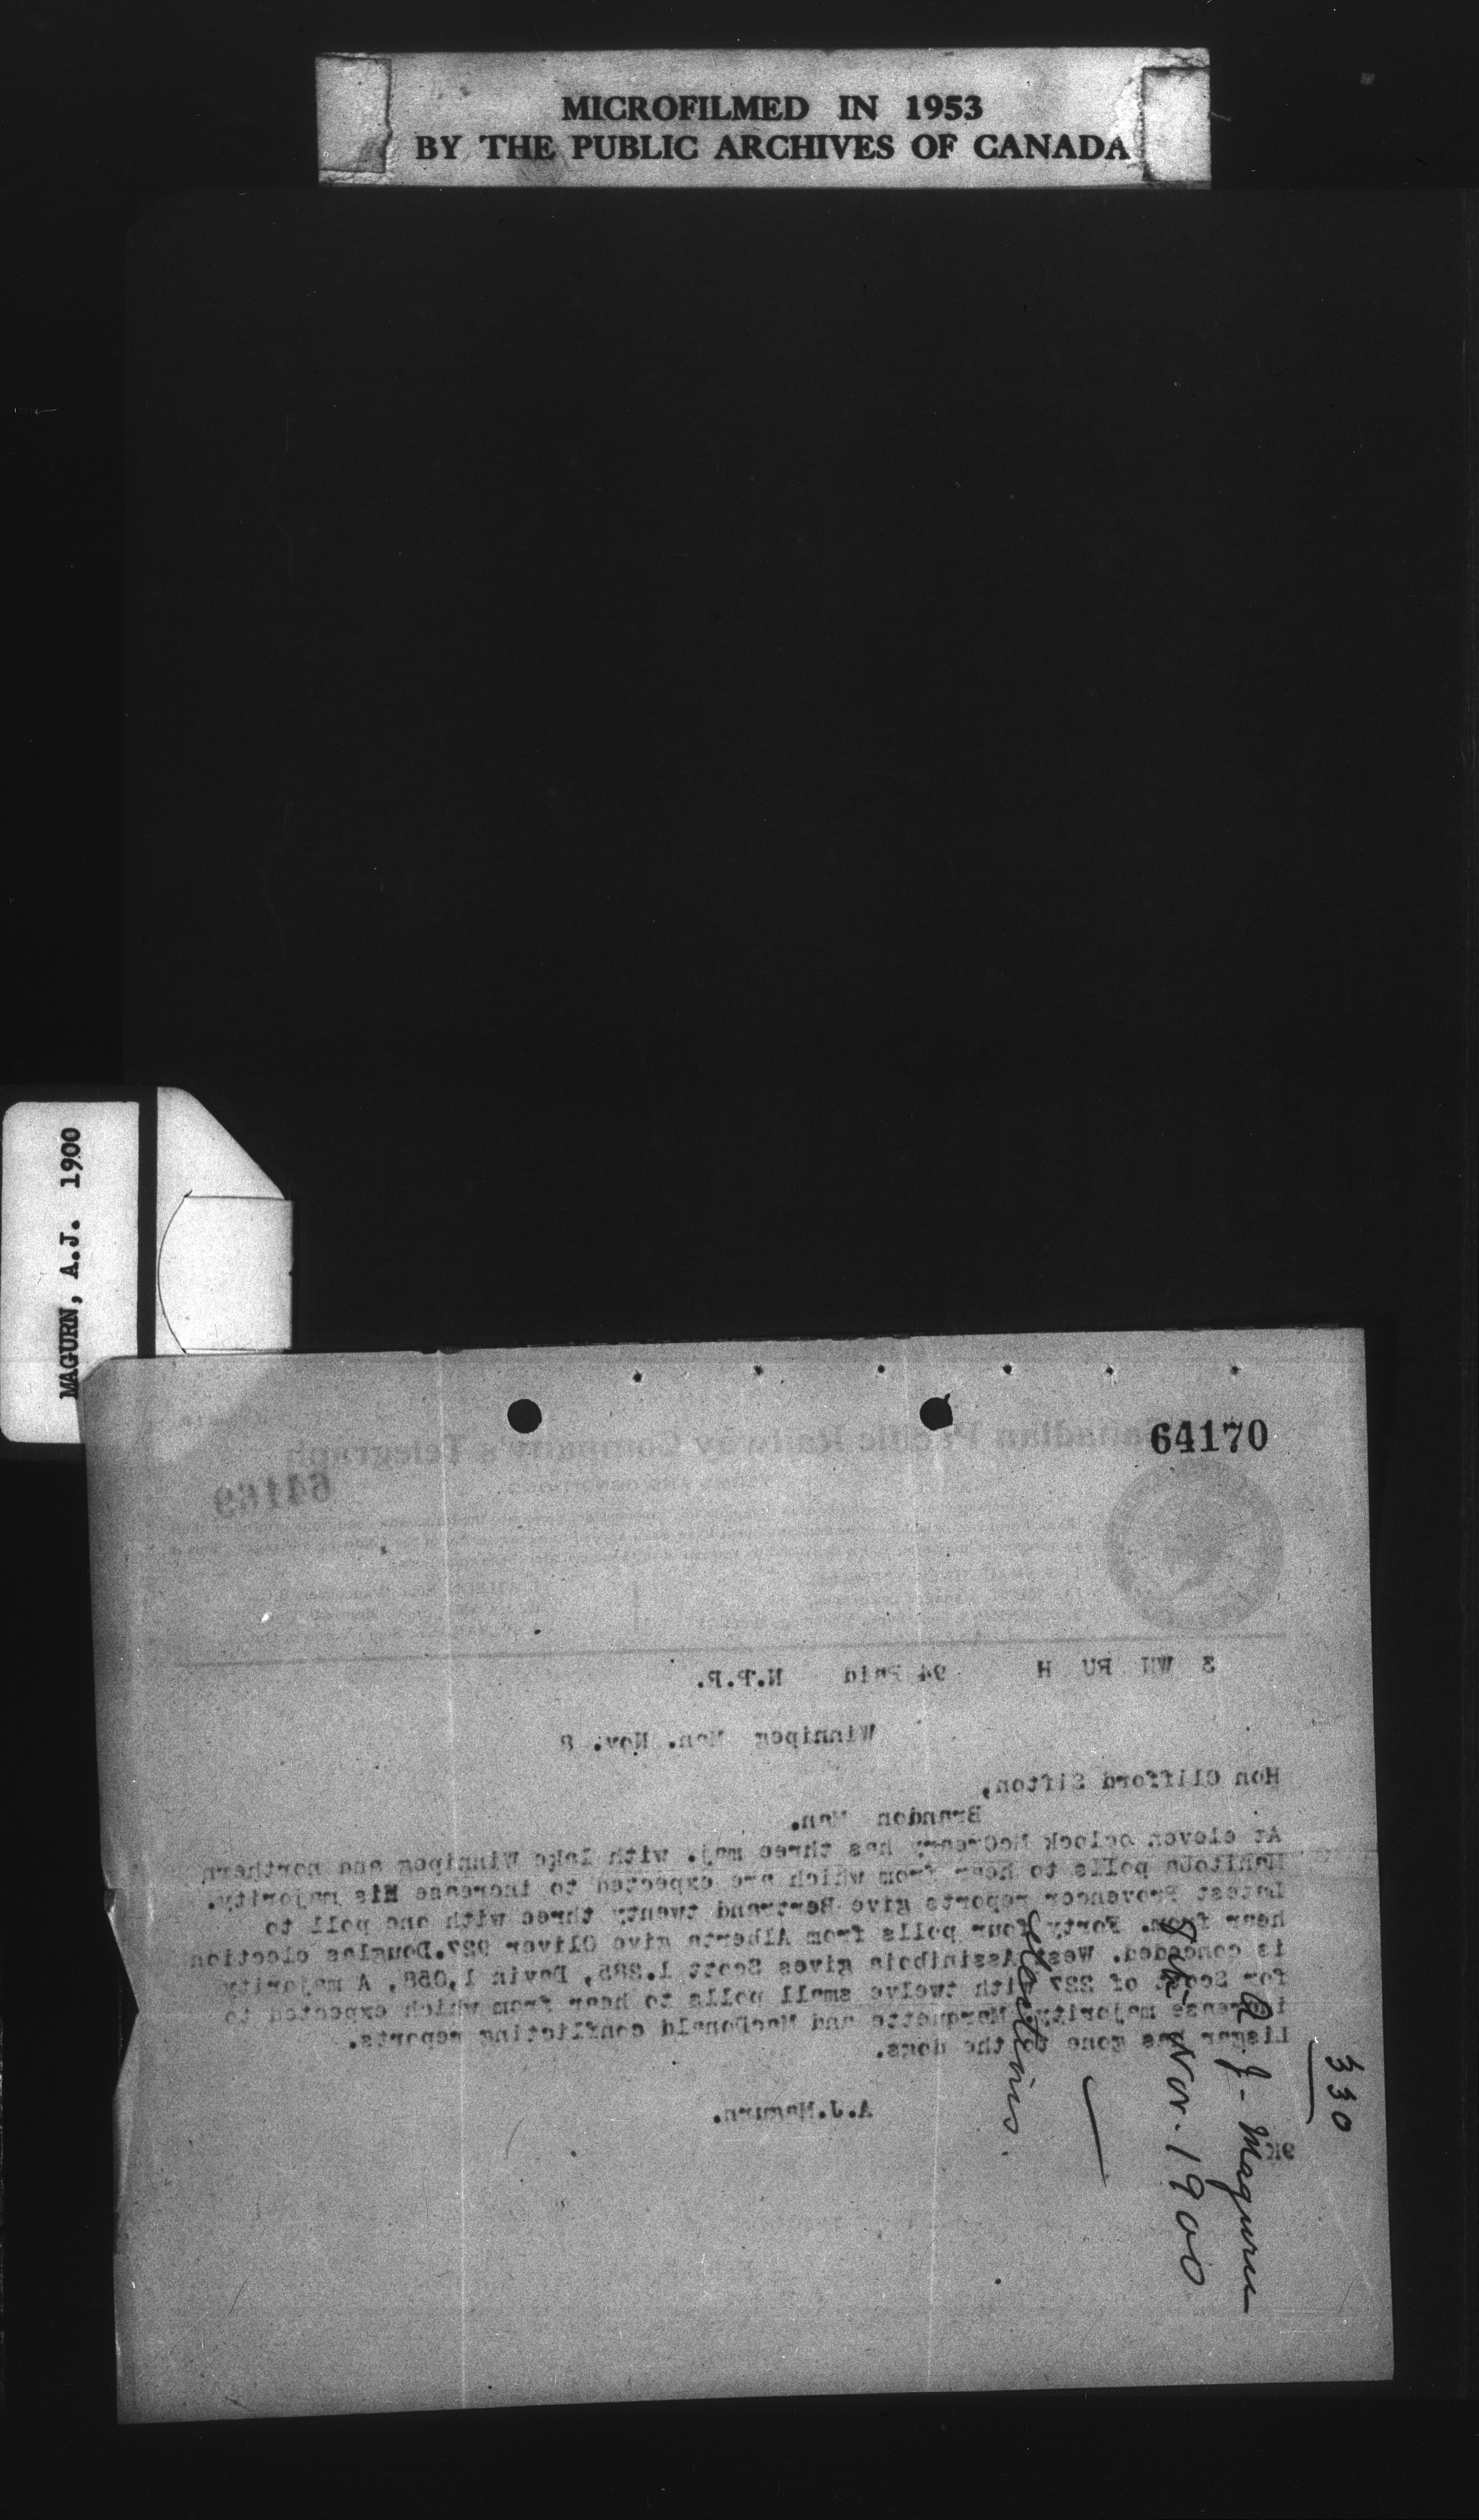 MICROFILMED IN 1953
BY THE PUBLIC ARCHIVES OF CANADA
MAGURN, A.J. 1900
64170
Canadian Pacific Railway Company's Telegraph
64169
3 WN RU H 94 Paid N.P.R.
Winnipeg Man. Nov. 8
Hon Clifford Sifton,
Brandon Man.
At eleven oclock McCreary has three maj. with lake Winnipeg and northern
Manitoba polls to hear from which are expected to increase His majority.
Latest Provencer reports give Bertrand twenty three with one poll to
hear from. Forty four polls from Alberta give Oliver 927. Douglas election
is conceded. West Assiniboia gives Scott 1.285, Davin 1,058, A majority
for Scott of 227 with twelve small polls to hear from which expected to
increase majority. Marquette and MacDonald conflicting reports.
Lisgar has gone to the dogs.
A.J.Magurn.
9K
330
A. J. Magurn
8th Nov. 1900
elections.